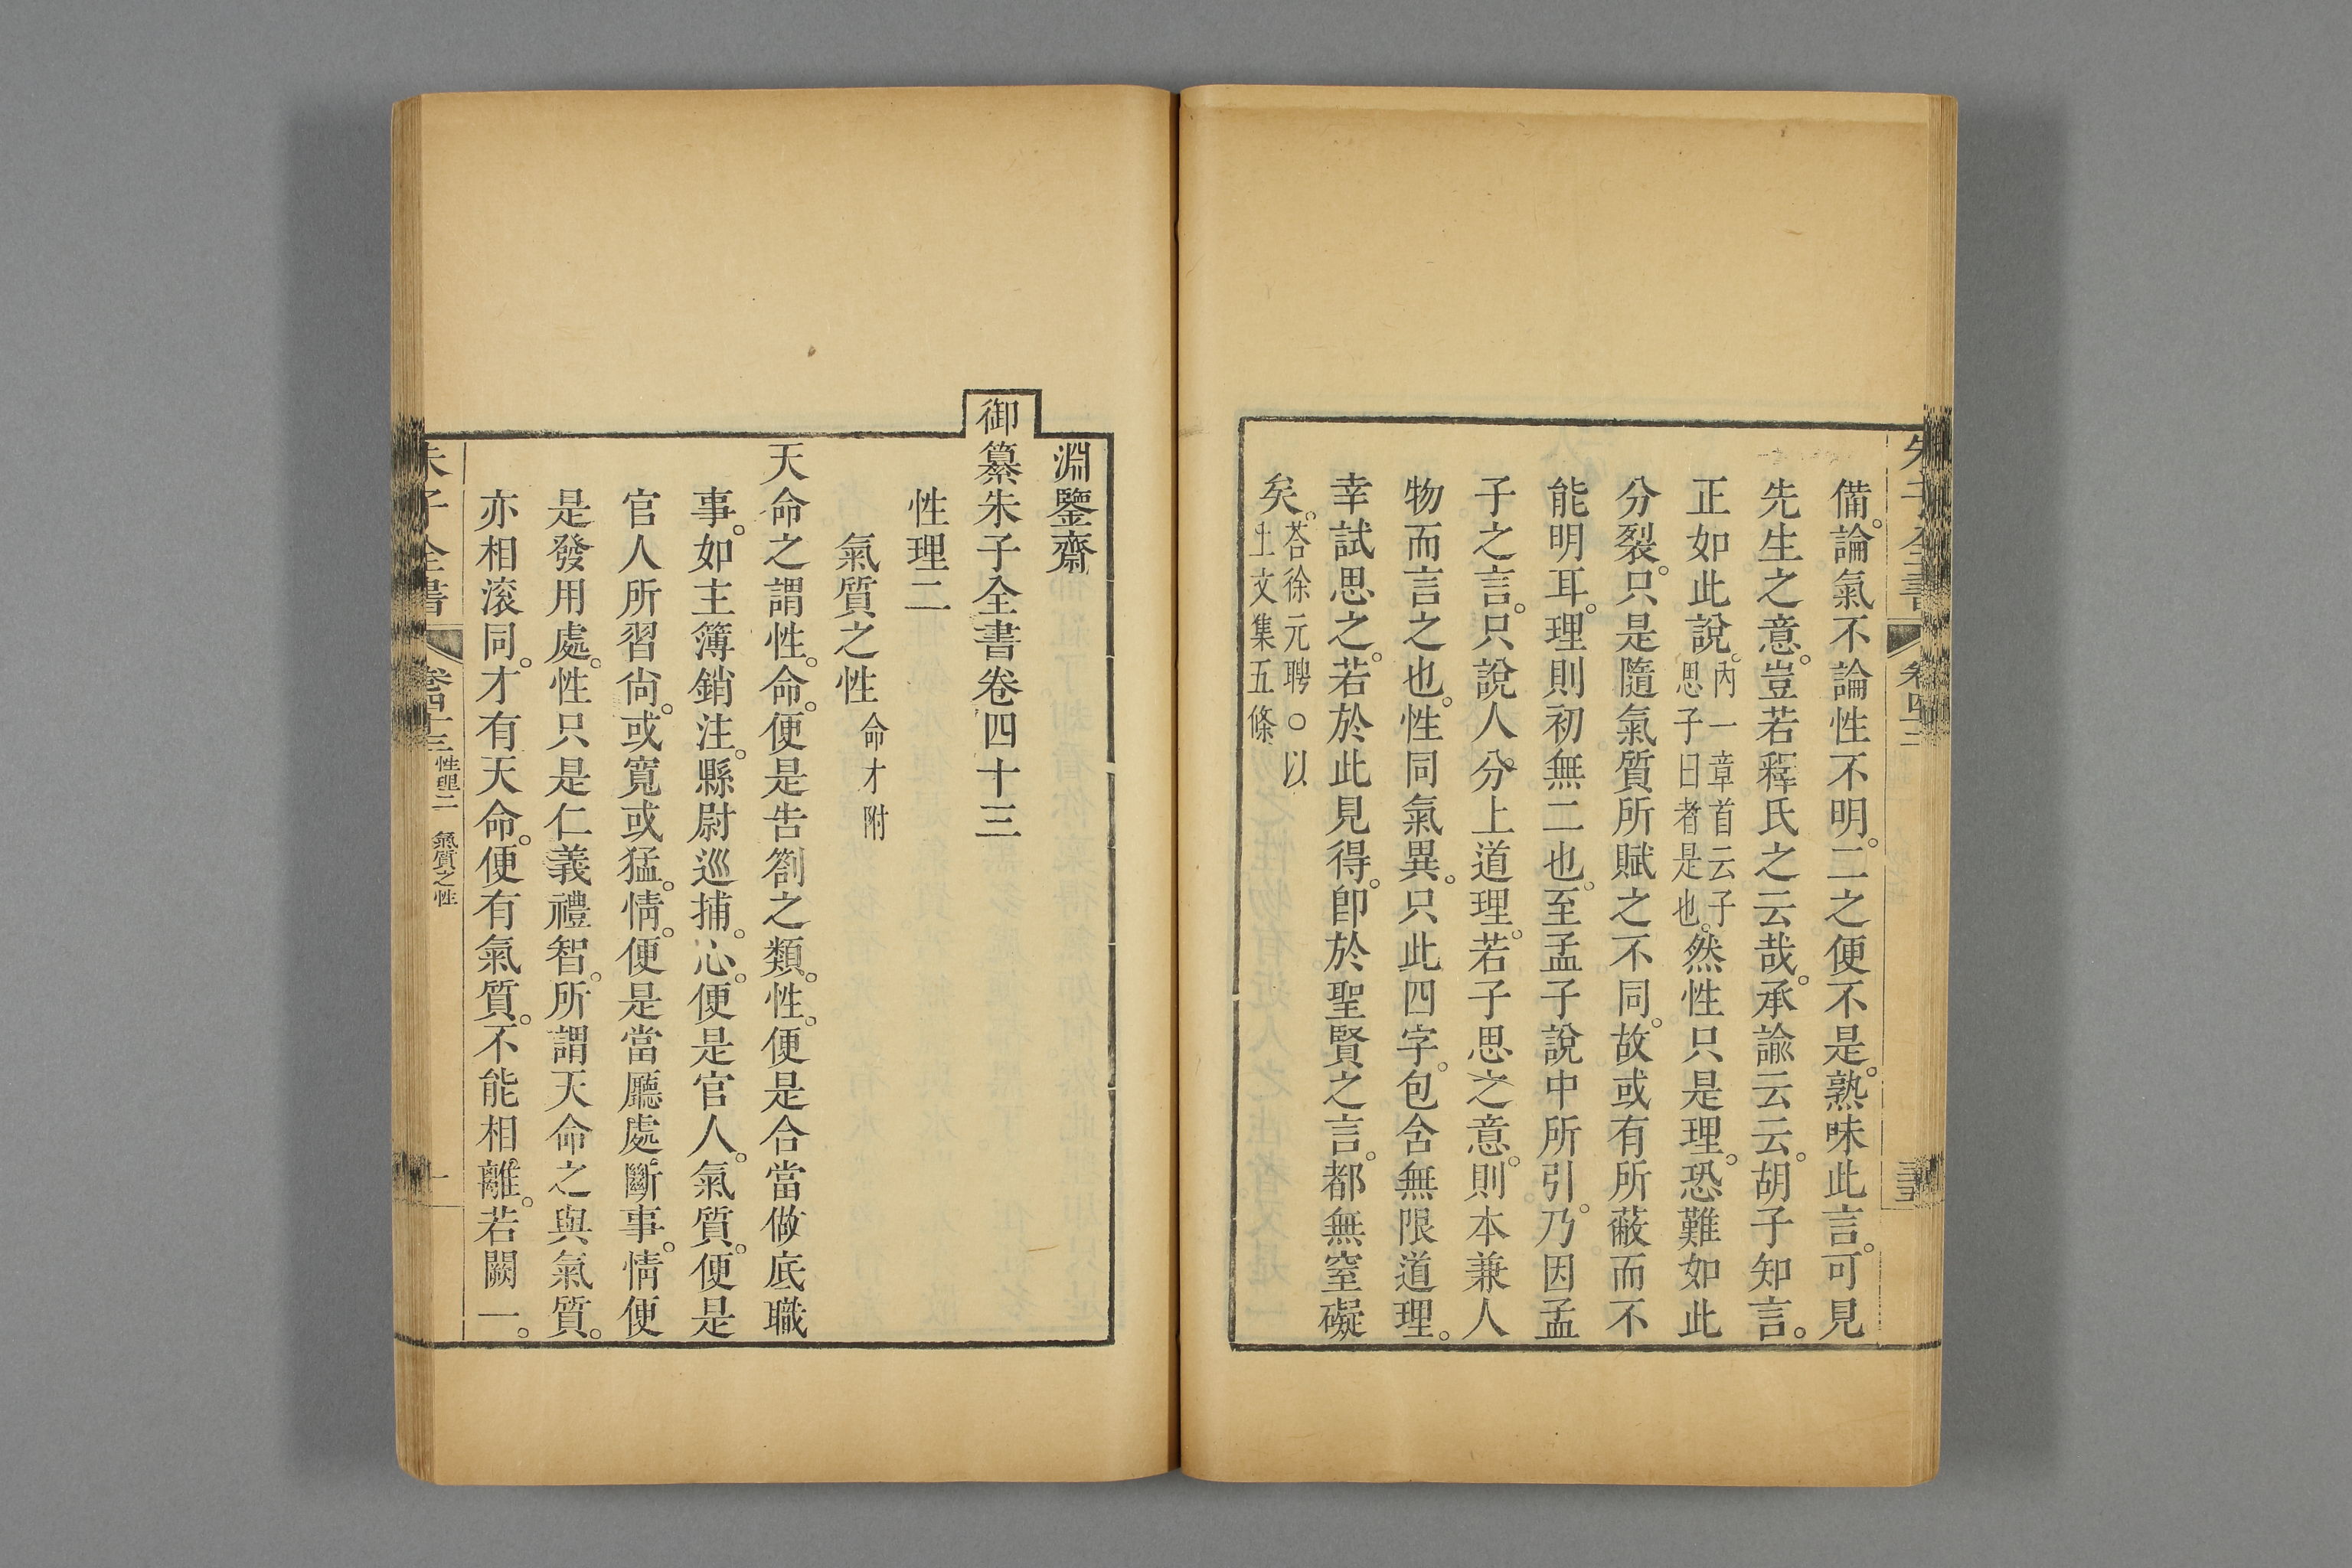 備。論氣不論性不明。二之便不是。熟味此言。可見
先生之意。豈若釋氏之云哉。承諭云云。胡子知言。
正如此說。內一章首云子思子曰者是也。然性只是理。恐難如此
分裂。只是隨氣質所賦之不同。故或有所蔽而不
能明耳。理則初無二也。至孟子說中所引。乃因孟
子之言。只說人分上道理。若子思之意。則本兼人
物而言之也。性同氣異。只此四字。包含無限道理。
幸試思之。若於此見得。卽於聖賢之言。都無窒礙
矣。荅徐元聘○以上文集五條
淵鑒齋
御纂朱子全書卷四十三
性理二
氣質之性 命才附
天命之謂性。命。便是告劄之類。性。便是合當做底職
事。如主簿銷注。縣尉巡捕。心。便是官人。氣質。便是
官人所習尙。或寬或猛。情。便是當廳處斷事。情便
是發用處。性只是仁義禮智。所謂天命之與氣質。
亦相滚同。才有天命。便有氣質。不能相離。若闕一。
朱子全書 卷四十三 性理二 氣質之性 一